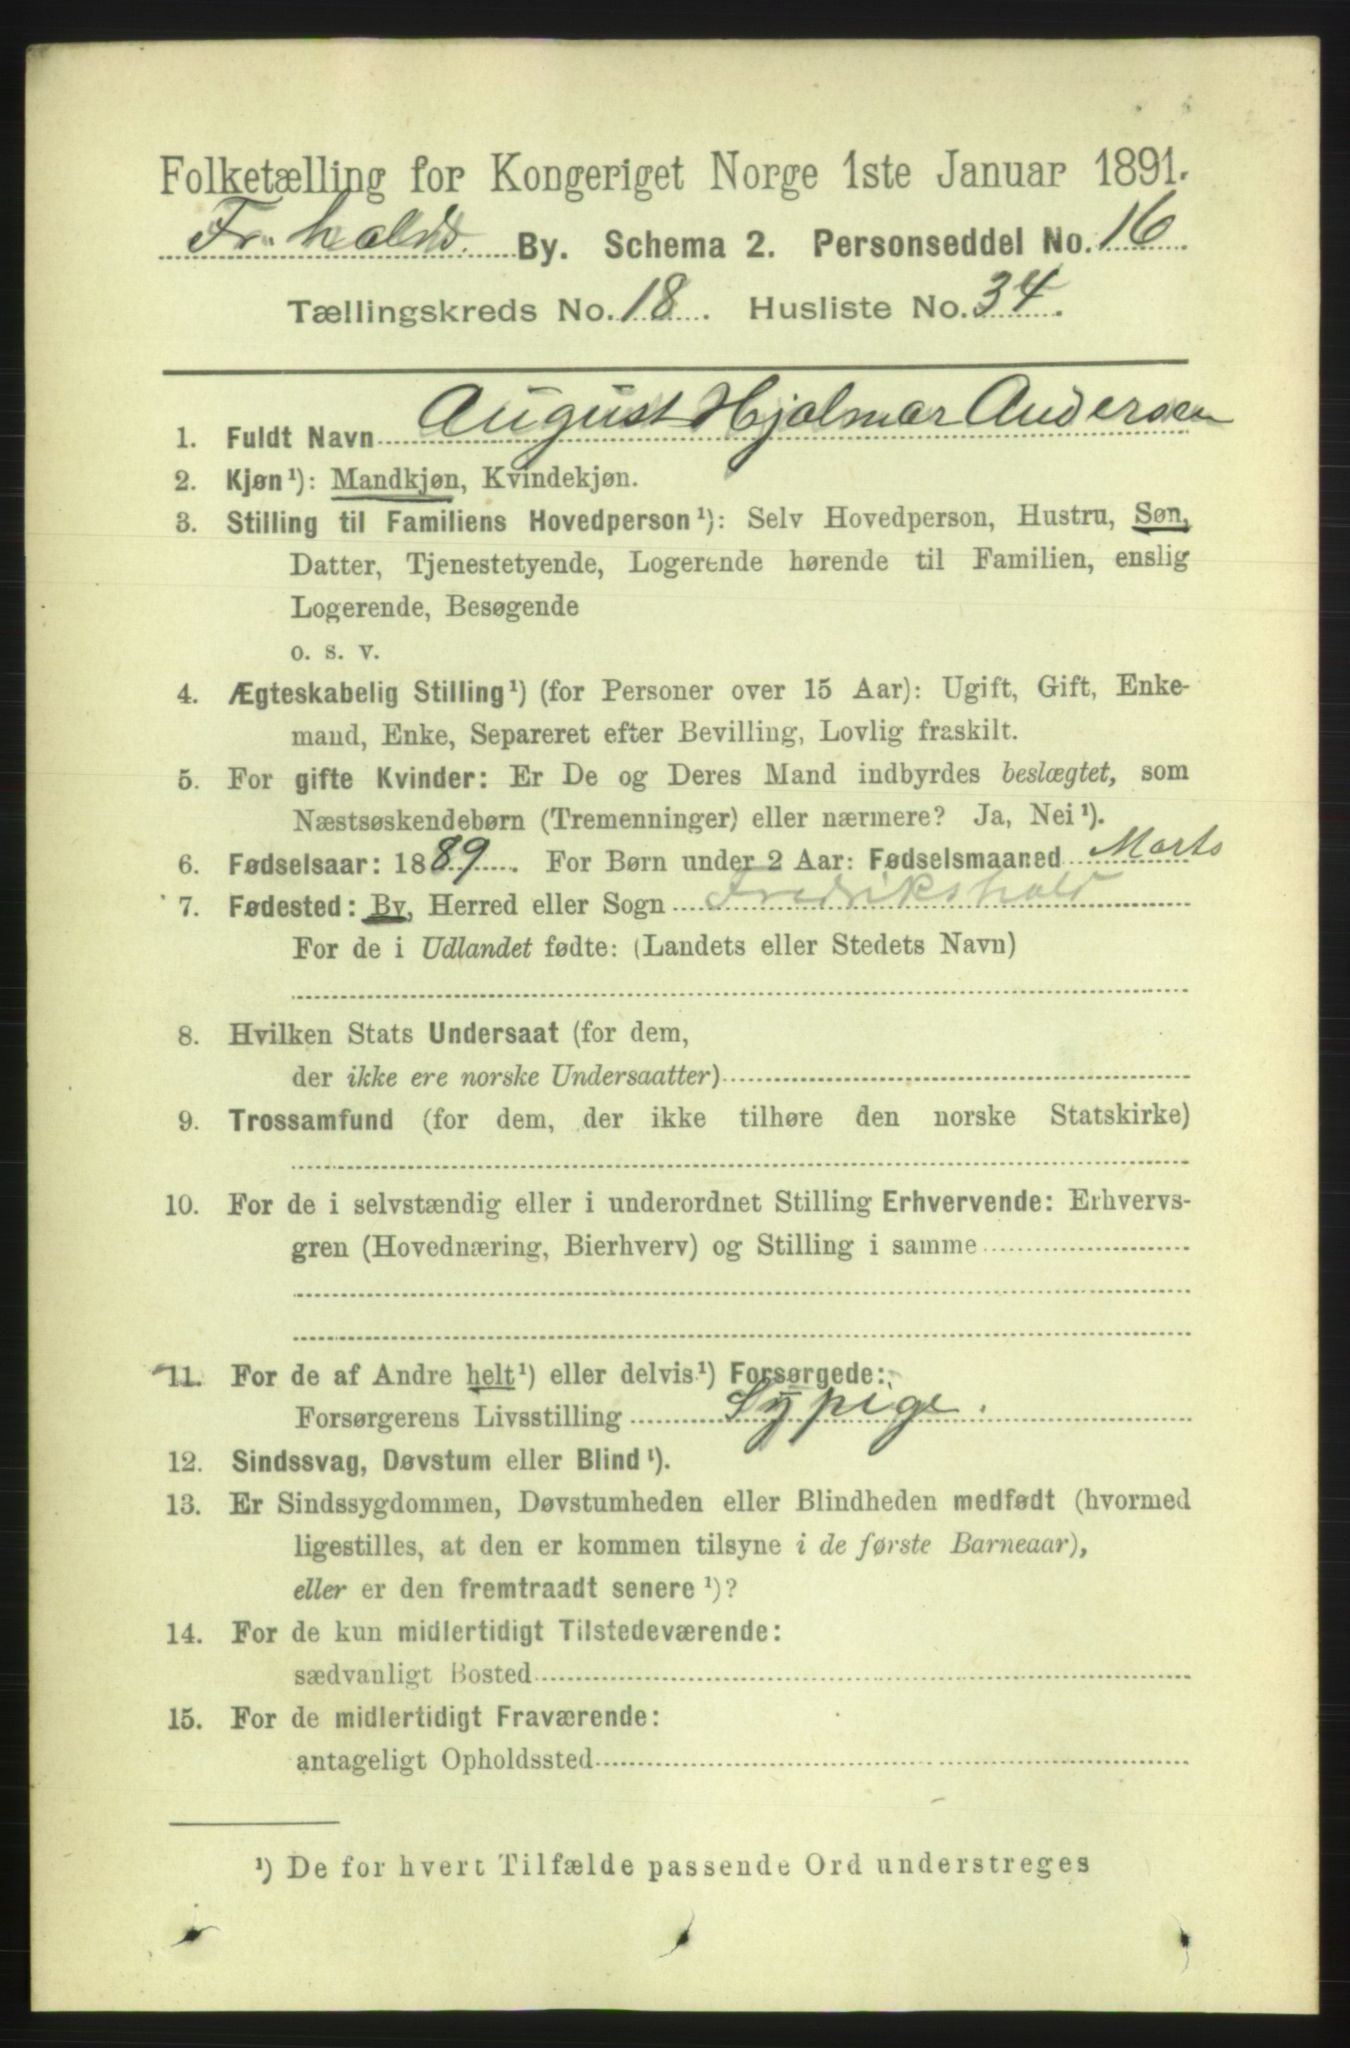 Folketælling for Kongeriget Norge 1ste Januar 1891.
Fr.halds. By. Schema 2. Personseddel No. 16
Tællingskreds No. 18. Husliste No. 34.
1. Fuldt Navn August Hjalmar Andersen
2. Kjøn¹): Mandkjøn, Kvindekjøn.
3. Stilling til Familiens Hovedperson¹): Selv Hovedperson, Hustru, Søn,
Datter, Tjenestetyende, Logerende hørende til Familien, enslig
Logerende, Besøgende
o. s. v.
4. Ægteskabelig Stilling¹) (for Personer over 15 Aar): Ugift, Gift, Enke-
mand, Enke, Separeret efter Bevilling, Lovlig fraskilt.
5. For gifte Kvinder: Er De og Deres Mand indbyrdes beslægtet, som
Næstsøskendebørn (Tremenninger) eller nærmere? Ja, Nei¹).
6. Fødselsaar: 1889. For Børn under 2 Aar: Fødselsmaaned Marts
7. Fødested: By, Herred eller Sogn Fredrikshald
For de i Udlandet fødte: (Landets eller Stedets Navn)
8. Hvilken Stats Undersaat (for dem,
der ikke ere norske Undersaatter)
9. Trossamfund (for dem, der ikke tilhøre den norske Statskirke)
10. For de i selvstændig eller i underordnet Stilling Erhvervende: Erhvervs-
gren (Hovednæring, Bierhverv) og Stilling i samme
11. For de af Andre helt¹) eller delvis¹) Forsørgede:
Forsørgerens Livsstilling Sypige.
12. Sindssvag, Døvstum eller Blind¹).
13. Er Sindssygdommen, Døvstumheden eller Blindheden medfødt (hvormed
ligestilles, at den er kommen tilsyne i de første Barneaar),
eller er den fremtraadt senere¹)?
14. For de kun midlertidigt Tilstedeværende:
sædvanligt Bosted
15. For de midlertidigt Fraværende:
antageligt Opholdssted
¹) De for hvert Tilfælde passende Ord understreges